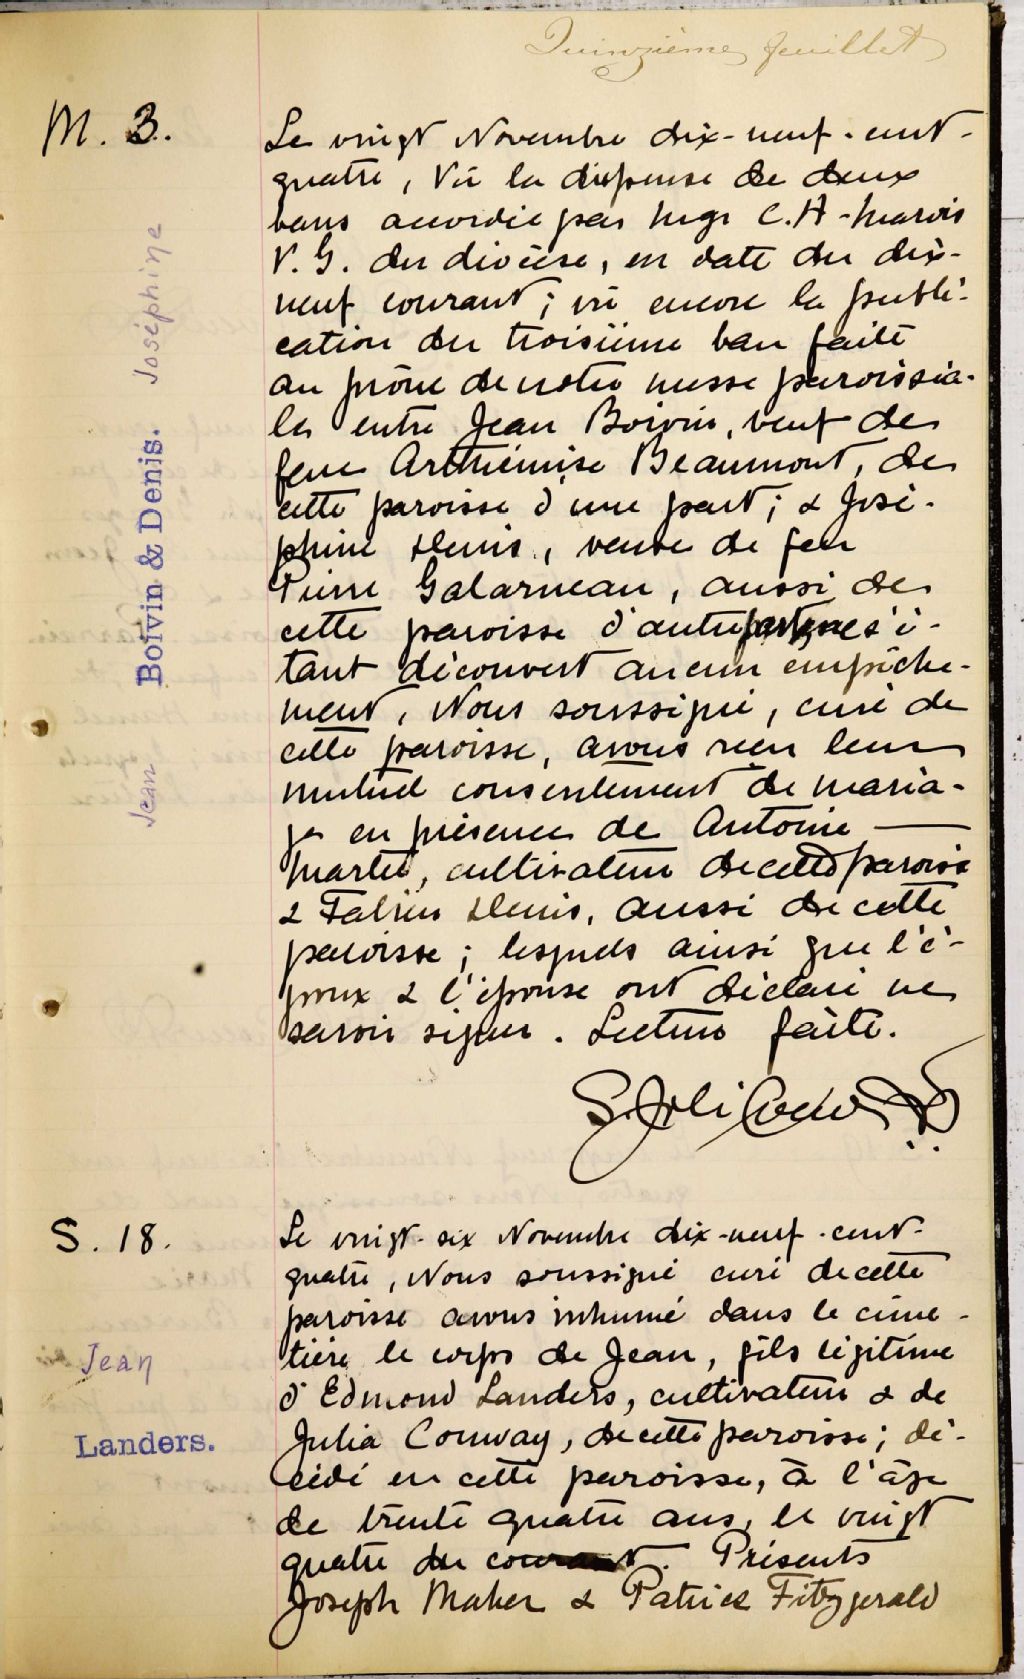 Quinzième feuillet
M. 3.
Jean Boivin & Denis. Joséphine
Le vingt Novembre dix-neuf-cent-
quatre, Vu la dispense de deux
bans accordée par Mgr C. A. Marois
V. G. du diocèse, en date du dix-
neuf courant; vu encore la publi-
cation du troisième ban faite
au prône de notre messe paroissia-
le entre Jean Boivin, veuf de
feue Arthémise Beaumont, de
cette paroisse d'une part; & José-
phine Denis, veuve de feu
Pierre Galarneau, aussi de
cette paroisse d'autre part, ne s'é-
tant découvert aucun empêche-
ment, Nous soussigné, curé de
cette paroisse, avons reçu leur
mutuel consentement de maria-
ge en présence de Antoine
Martel, cultivateur de cette paroisse
& Fabien Denis, aussi de cette
paroisse; lesquels ainsi que l'é-
poux & l'épouse ont déclaré ne
savoir signer. Lecture faite.
S. 18.
Jean
Landers.
Le vingt-six Novembre dix-neuf-cent-
quatre, Nous soussigné curé de cette
paroisse avons inhumé dans le cime-
tière le corps de Jean, fils légitime
d'Edmond Landers, cultivateur & de
Julia Conway, de cette paroisse; dé-
cédé en cette paroisse, à l'âge
de trente quatre ans, le vingt
quatre du courant. Présents
Joseph Maher & Patrick Fitzgerald